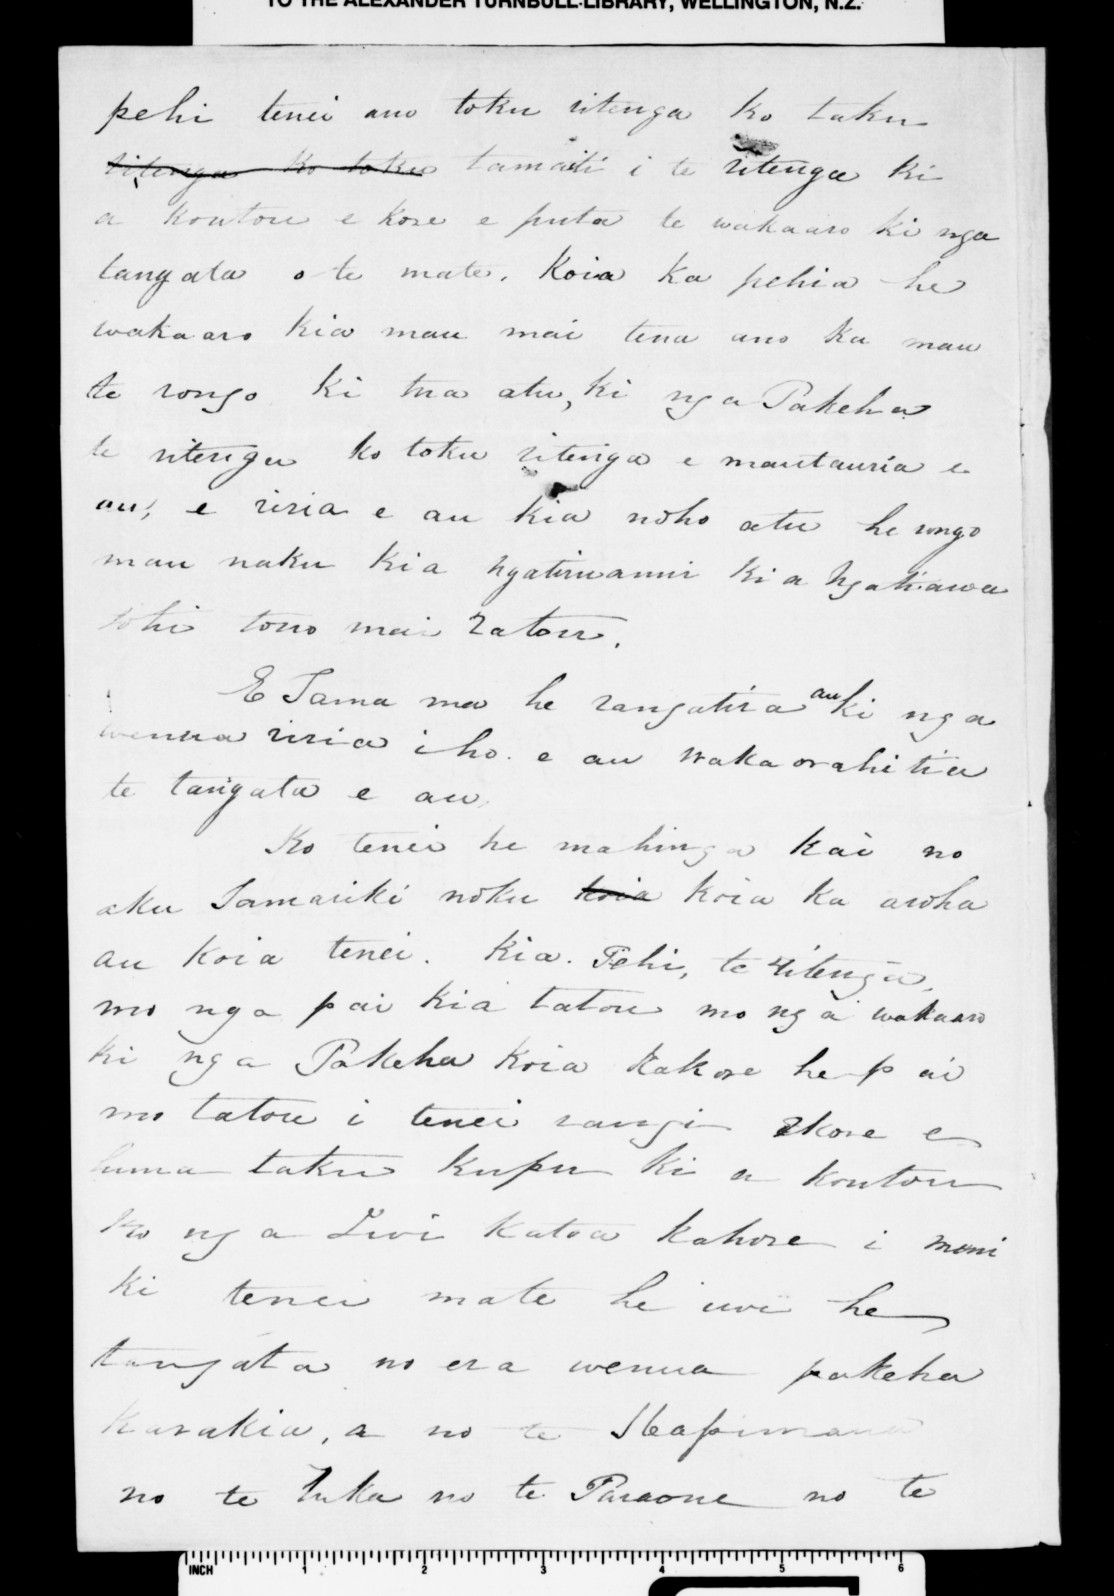 TO THE ALEXANDER TURNBULL LIBRARY, WELLINGTON, N.Z.
pehi tenei ano toku ritenga ko taku
ritenga ko toku tamaiti i te ritenga ki
a koutou e kore e puta te wakaaro ki nga
tangata o te mate. Koia ka pehia he
wakaaro kia mau mai tena ano ka mau
te rongo ki tua atu, ki nga Pakeha
te ritenga ko toku ritenga e mautauria e
au, e riria e au kia noho atu he rongo
mau naku kia Ngatiruanui kia Ngatiawa
tohi tono mai ratou.
E Tama ma he rangatira au ki nga
wenua riria iho e au waka orahitia
te tangata e au
Ko tenei he mahinga kai no
aku Tamariki noku koia koia ka aroha
au koia tenei. Kia. Pehi, te ritenga,
mo nga pai kia tatou mo nga wakaaro
ki nga Pakeha koia kakore he pai
mo tatou i tenei rangi ekore e
huna taku kupu ki a koutou
Ko nga Iwi katoa kahore i
ki tenei mate he iwi he
tangata no era wenua pakeha
karakia, a no te Hapimana
no te Tuka no te Paraone no te
INCH 1 2 3 4 5 6